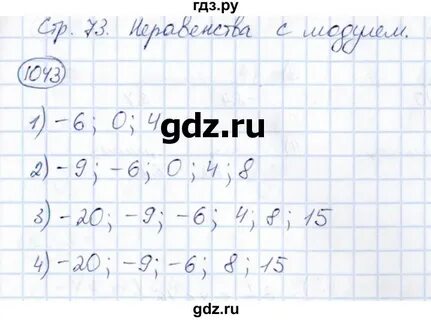 гдз.ру
Стр. 73. Неравенства с модулем.
1043
1) -6; 0; 4
gdz.ru
2) -9; -6; 0; 4; 8
3) -20; -9; -6; 4; 8; 15
4) -20; -9; -6; 8; 15
гдз.ру